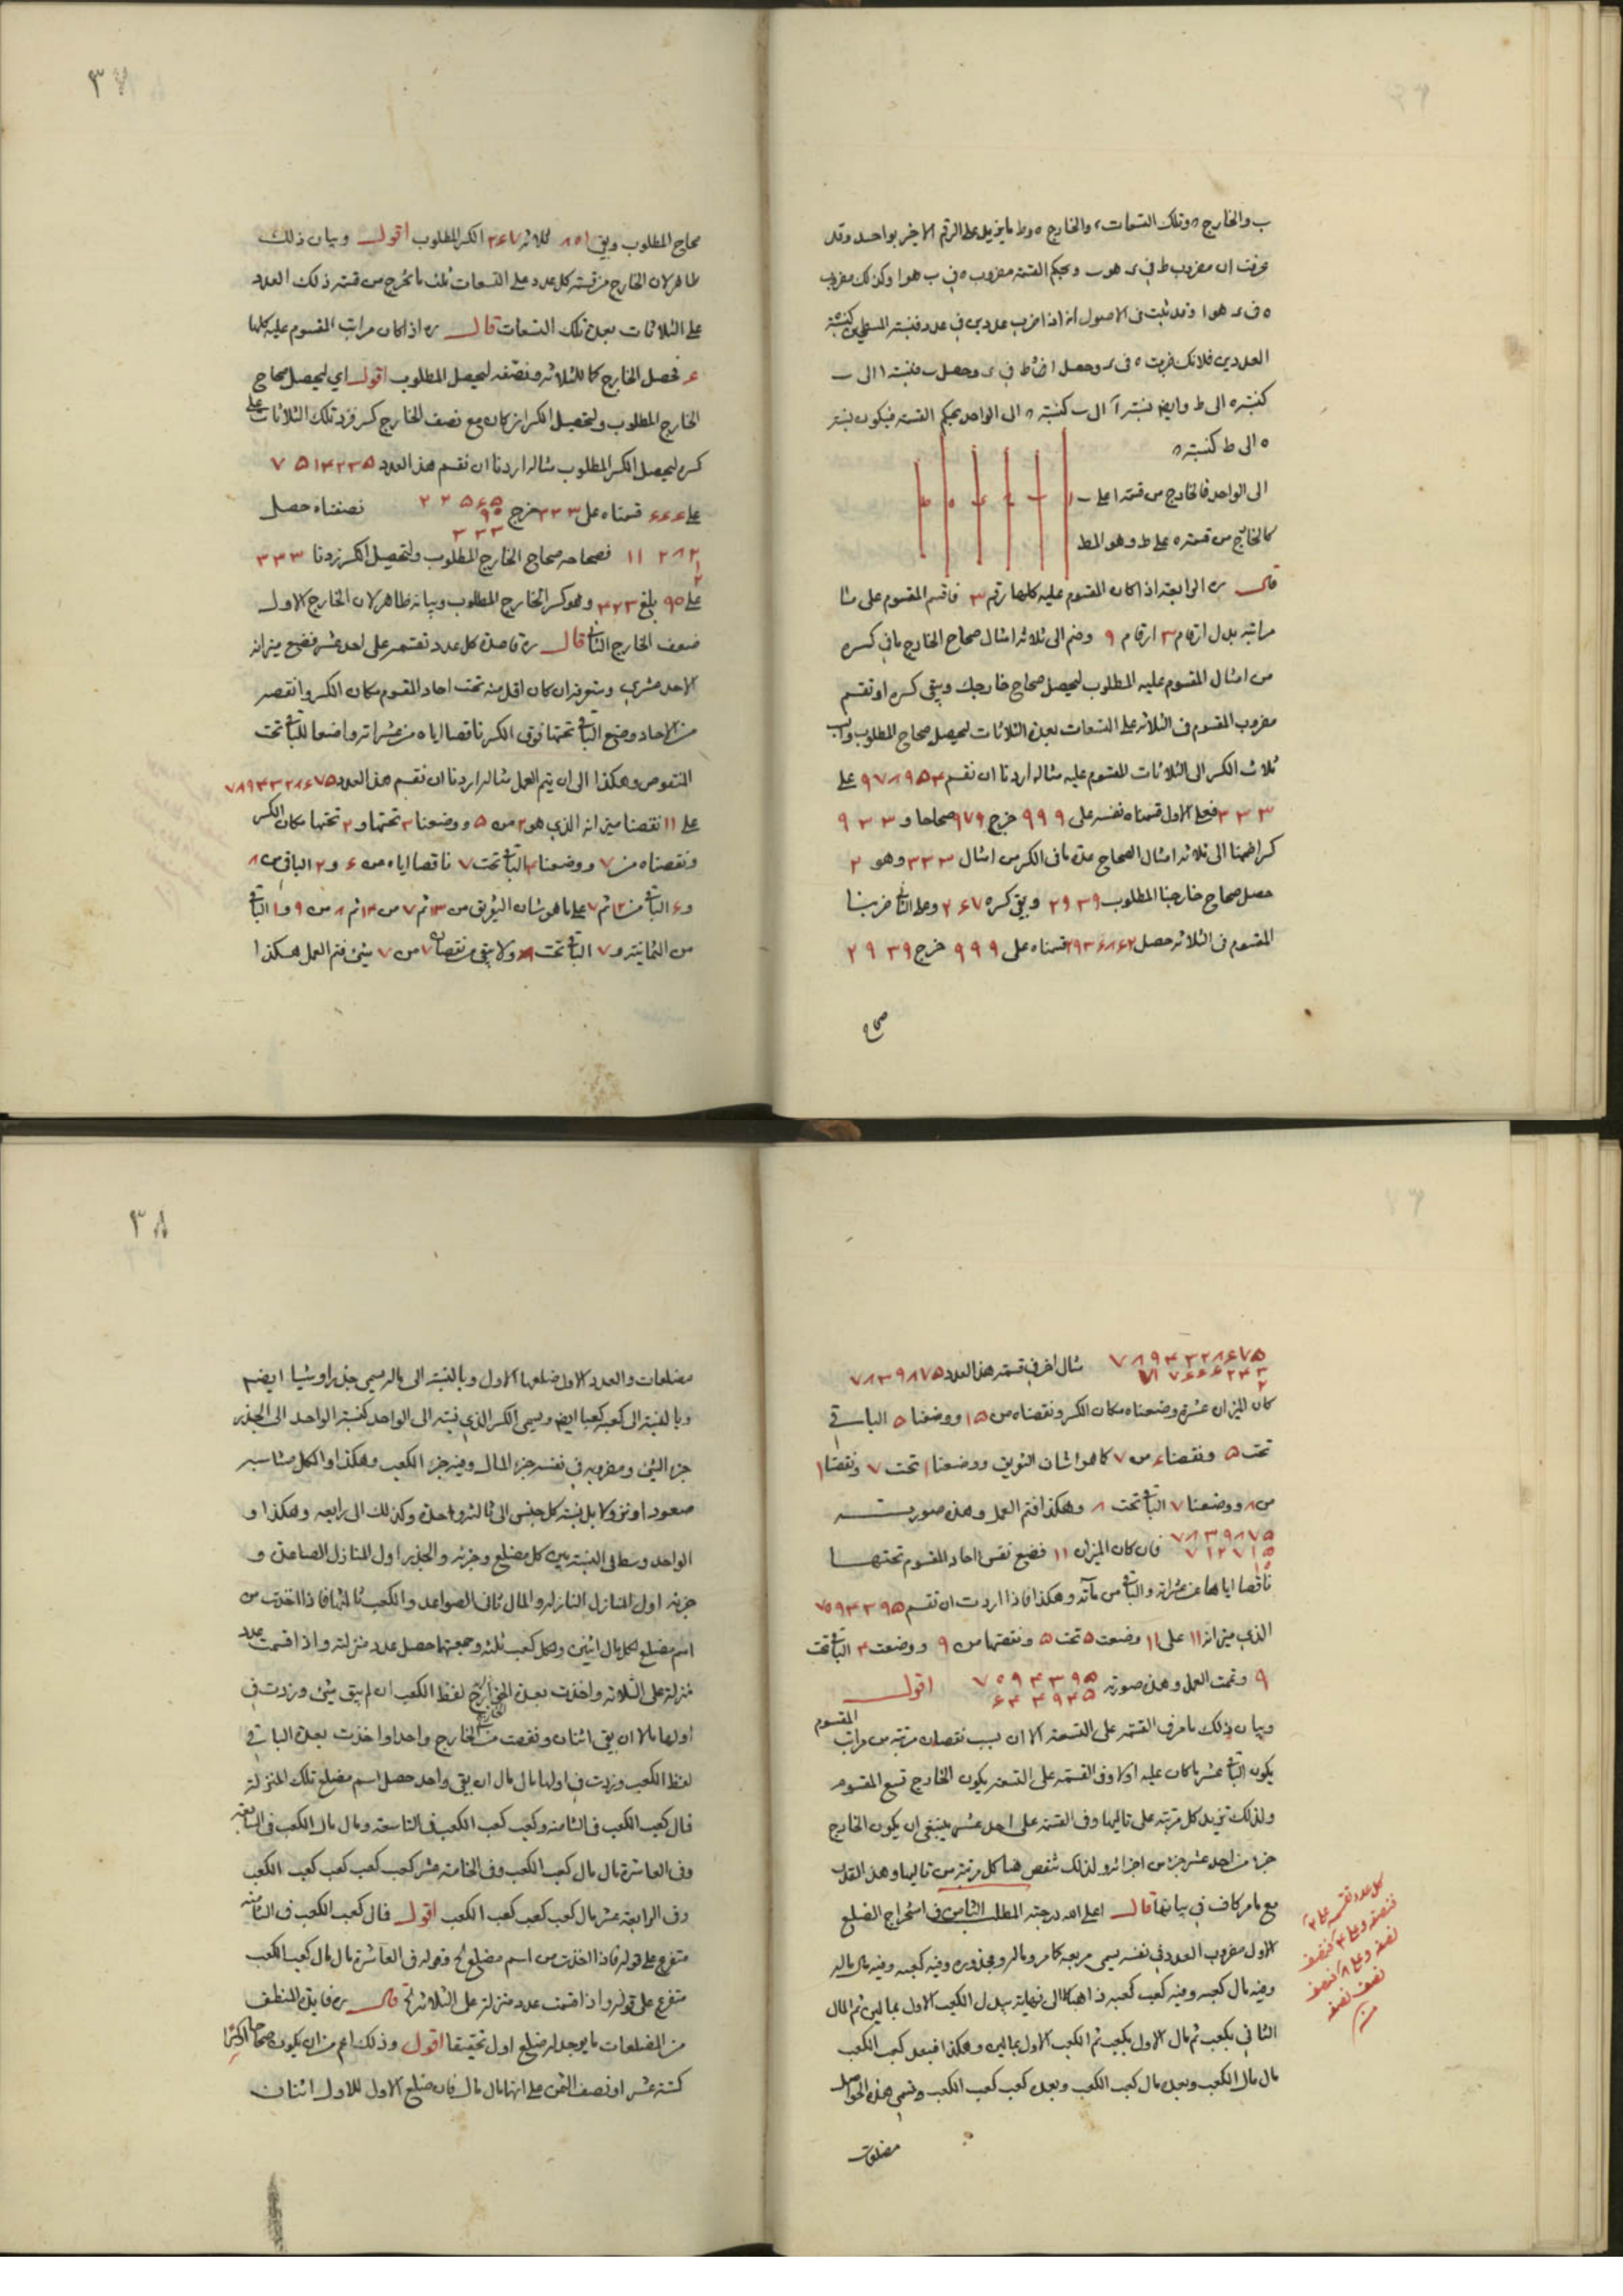 ب والخارج ح وتلك التسعات ء والخارج ه وط ما يزيد على الرقم الاخير بواحد وقد
عرفت ان مضروب ط في ء هو ب وبحكم القسمة مضروب ح في ب هو ا وكذلك مضروب
ه في ء هو ا وقد ثبت في الاصول انه اذا ضرب عددين في عدد فنسبة المسطحين كنسبة
العددين فلانك ضربت ه في ء وحصل ا ط في ء وحصل ب فنسبة ا الى ب
كنسبة ه الى ط وايضا نسبة ا الى ب كنسبة ح الى الواحد بحكم القسمة فيكون نسبة
ه الى ط كنسبة ح
الى الواحد فالخارج من قسمة ا على ب
كالخارج من قسمة ه على ط وهو المط
قال ره الرابعة اذا كان المقسوم عليه كلها رقم ٣ فاقسم المقسوم على
مراتبه بدل ارقام ٣ ارقام ٩ وضم الى ثلاثة امثال صحاح الخارج ما في كسره
من امثال المقسوم عليه المطلوب ليحصل صحاح خارجك ويبقى كسره او تقسم
مضروب المقسوم في الثلاثة على التسعات بعدة الثلاثات ليحصل صحاح المطلوب
ثلاث الكسر الى الثلاثات المقسوم عليه مثاله اردنا ان نقسم ٩٧٨٩٥٤ على
٣٣٣ فعلى الاول قسمناه نفسه على ٩٩٩ خرج ٩٧٩ صحاحا و ٩٣٣
كسرا ضمنا الى ثلاثة امثال الصحاح عدة ما في الكسر من امثال ٣٣٣ وهو ٢
حصل صحاح خارجنا المطلوب ٢٩٣٩ وبقى كسره ٢٦٧ وعلى الثاني ضربنا
المقسوم في الثلاثة حصل ٢٩٣٦٨٦٢ قسمناه على ٩٩٩ خرج ٢٩٣٩
صحاح
٣٧
صحاح المطلوب وبقى ٨٠١ ثلاثه ٢٦٧ الكسر المطلوب اقول وبيان ذلك
ظاهر لان الخارج من قسمة كل عدد على التسعات ثلث ما يخرج من قسمة ذلك العدد
على الثلاثات بعدة تلك التسعات قال ره اذا كان مراتب المقسوم عليه كلها
٦ فحصل الخارج كما للثلاثة ونصفه ليحصل المطلوب اقول اي ليحصل صحاح
الخارج المطلوب ولتحصيل الكسر ان كان مع نصف الخارج كسر فزد تلك الثلاثات على
كسره ليحصل الكسر المطلوب مثاله اردنا ان نقسم هذا العدد ٧٥١٤٢٣٥
على ٦٦٦ قسمناه على ٣٣٣ خرج ٢٢٥٦٥ نصفناه حصل
٩٠
٣٣٣
١١٢٨٢ فصحاحه صحاح الخارج المطلوب ولتحصيل الكسر زدنا ٣٣٣
١
٢
على ٩٠ بلغ ٤٢٣ وهو كسر الخارج المطلوب وبيانه ظاهر لان الخارج الاول
ضعف الخارج الثاني قال ره قاعدة كل عدد تقسمه على احد عشر فضع ميزانه
الاحد عشري وستعرفه ان كان اقل منه تحت احاد المقسوم مكان الكسر وانقصه
من الاحاد وضع الباقي تحتها فوق الكسر ناقصا اياه من عشراته واضعا للباقي تحت
المنقوص وهكذا الى ان يتم العمل مثاله اردنا ان نقسم هذا العدد ٧٨٩٤٣٢٨٦٧٥
على ١١ نقصنا ميزانه الذي هو ٢ من ٥ ووضعنا ٣ تحتها و ٢ تحتها مكان الكسر
ونقصناه من ٧ ووضعنا ٤ الباقي تحت ٧ ناقصا اياه من ٦ و ٢ الباقي من ٨
و ٦ الباقي من ١٢ ثم ٧ على ما هو شان التفريق من ١٣ ثم ٧ من ١٤ ثم ٨ من ٩ و ١ الباقي
من الثمانية و ٧ الباقي تحت ٨ ولا يبقى من نقصان ٧ من ٧ شيئ فتم العمل هكذا
٧٨٩٤٣٢٨٦٧٥ مثال اخر في قسمة هذا العدد ٧٨٣٩٨٧٥
٧١٧٦٦٦٢٤٣
٢
كان الميزان عشرة وضعناه مكان الكسر ونقصناه من ١٥ ووضعنا ٥ الباقي
تحت ٥ ونقصنا ٦ من ٧ كما هو شان التفريق ووضعنا ١ تحت ٧ ونقصنا ١
من ٨ ووضعنا ٧ الباقي تحت ٨ وهكذا فتم العمل وهذه صورته
٧٨٣٩٨٧٥ فان كان الميزان ١١ فضع نفس احاد المقسوم تحتها
٧١٢٧١٥
١٠
ناقصا اياها من عشراته والباقي من مآته وهكذا فاذا اردت ان تقسم ٧٥٩٤٣٩٥
الذي ميزانه ١١ على ١١ وضعت ٥ تحت ٥ ونقصتها من ٩ ووضعت ٤ الباقي تحت
٩ وتمت العمل وهذه صورته ٧٥٩٤٣٩٥ اقول
٦٩٤٩٤٥
وبيان ذلك ما مر في القسمة على التسعة الا ان بسبب نقصان مرتبة من مراتب المقسوم
يكون الباقي عشر ما كان عليه اولا وفي القسمة على التسعة يكون الخارج تسع المقسوم
ولذلك تزيد كل مرتبة على تاليها وفي القسمة على احد عشر ينبغي ان يكون الخارج
جزءا من احد عشر جزءا من اجزائه ولذلك تنقص هنا كل مرتبة من تاليها وهذا القدر
مع ما مر كاف في بيانها قال اعلى الله درجته المطلب الثامن في استخراج الضلع
الاول مضروب العدد في نفسه يسمى مربعه كما مر وماله ومجذوره وفيه كعبه وفيه مال ماله
وفيه مال كعبه وفيه كعب كعبه هكذا الى نهاية يبدل الكعب الاول بمالين ثم المال
الثاني بكعب ثم مال الاول بكعب ثم الكعب الاول بمالين وهكذا فبعد كعب الكعب
مال مال الكعب وبعده مال كعب الكعب وبعده كعب كعب الكعب وتسمى هذه الحواصل
مضلعات
كل عدد تقسمه على ٢
فنصفه وعلى ٤ فنصف
نصفه وعلى ٨ فنصف
نصف نصفه
منه
٣٨
مضلعات والعدد الاول ضلعها الاول وبالنسبة الى ماله يسمى جذرا وشيئا ايضا
وبالنسبة الى كعبه كعبا ايضا ويسمى الكسر الذي نسبته الى الواحد كنسبة الواحد الى الجذر
جزء الشيئ ومضروبه في نفسه جزء المال وفيه جزء الكعب وهكذا والكل متناسبه
صعودا ونزولا بل نسبة كل جنس الى ثالثه واحدة وكذلك الى رابعه وهكذا و
الواحد وسط في النسبة بين كل مضلع وجزئه والجذر اول المنازل الصاعدة و
جزئه اول المنازل النازله والمال ثاني الصواعد والكعب ثالثها فاذا اخذت من
اسم مضلع لكل مال اثنين ولكل كعب ثلثة وجمعتها حصل عدد منزلته واذا قسمت عدد
منزلة على الثلاثه واخذت بعدة الخارج لفظ الكعب ان لم يبق شيئ وزدت في
اولها مالا ان بقى اثنان ونقصت من الخارج واحدا واخذت بعدة الباقي
لفظ الكعب وزدت في اولها مال مال ان بقى واحد حصل اسم مضلع تلك المنزلة
فمال كعب الكعب في الثامنة وكعب كعب الكعب في التاسعة ومال مال الكعب في السابعة
وفي العاشرة مال مال كعب الكعب وفي الخامسة عشر كعب كعب كعب كعب الكعب
وفي الرابعة عشر مال كعب كعب كعب الكعب اقول فمال كعب الكعب في الثامنة
متفرع على قوله فاذا اخذت من اسم مضلع الخ وقوله في العاشرة مال مال كعب الكعب
متفرع على قوله واذا قسمت عدد منزلة على الثلاثة الخ قال ره فايدة المنطق
من المضلعات ما يوجد له ضلع اول تحقيقا اقول وذلك اعم من ان يكون صحاحا او كسرا
كستة عشر او نصف الثمن على انها مال مال فان ضلع الاول للاول اثنان